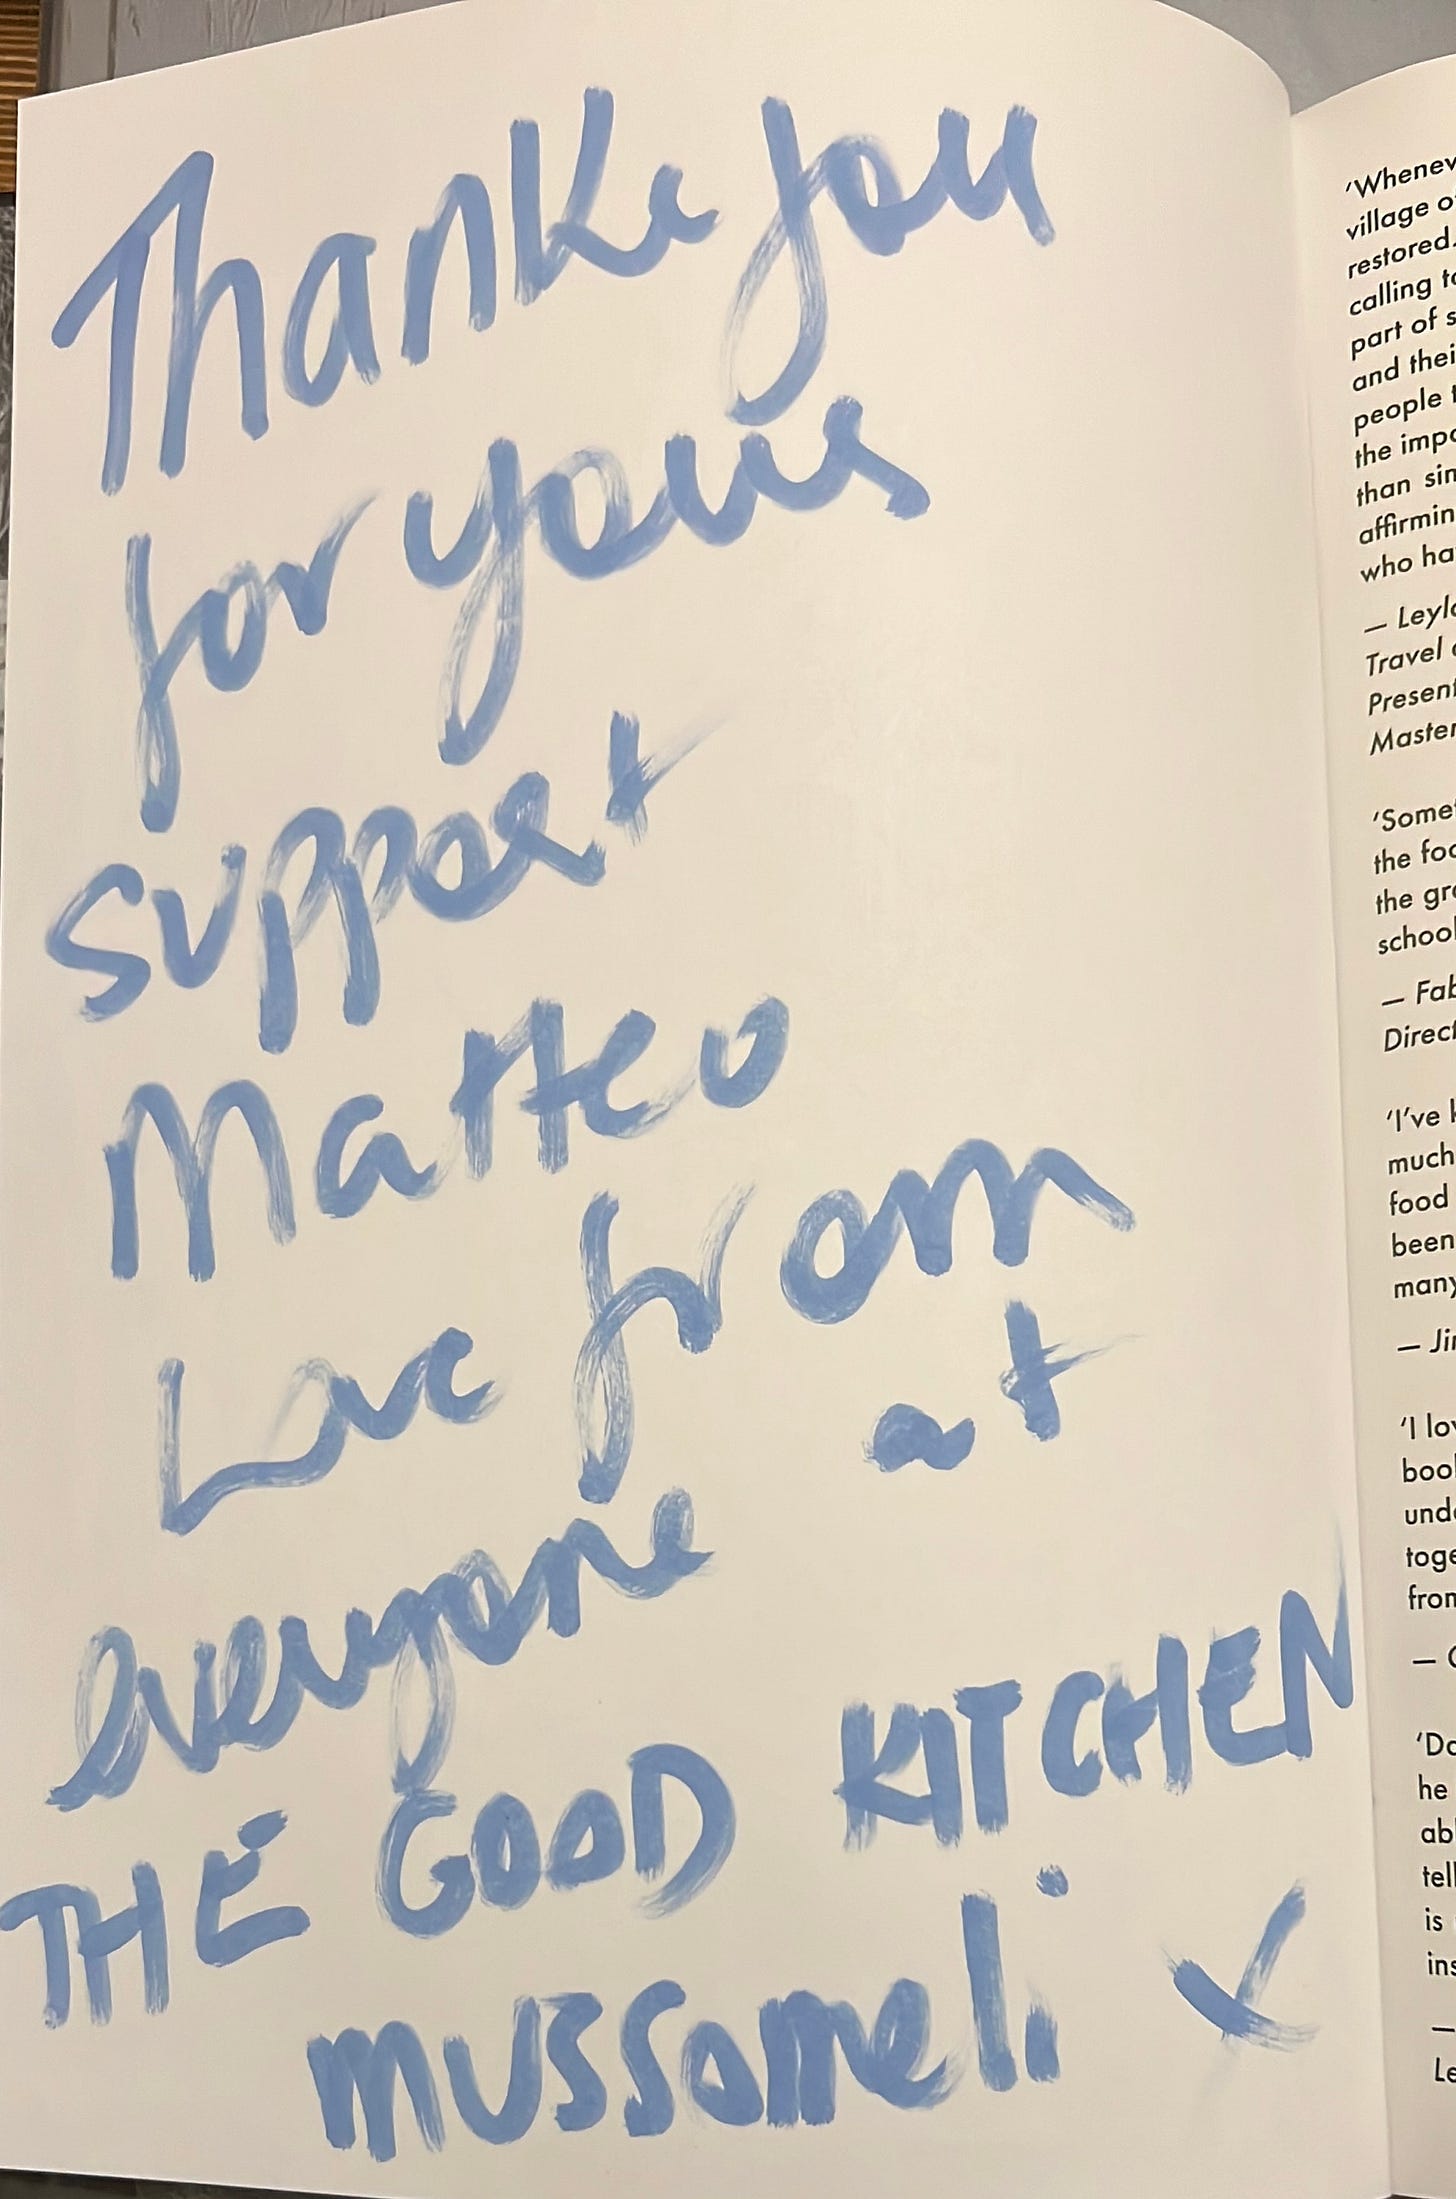 Thank you
for your
support
Matteo
Love from
everyone at
THE GOOD KITCHEN
mussomeli x
'Whenev
village o
restored.
calling to
part of s
and thei
people t
the impo
than sin
affirmin
who ha
— Leyla
Travel
Present
Master
'Some
the foo
the gr
school
— Fab
Direct
'I've
much
food
been
many
— Ji
'I lov
boo
unde
toge
from
—
'Do
he
ab
tell
is
ins
—
Le